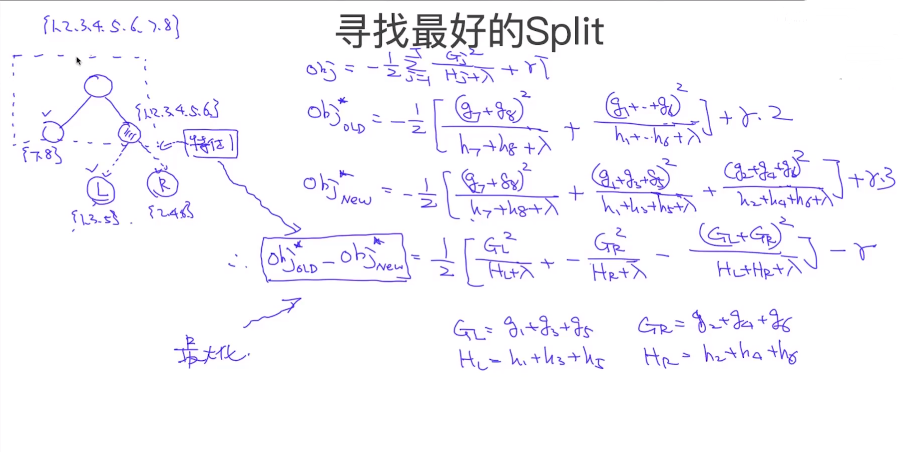 寻找最好的Split
{1.2.3.4.5.6.7.8}
obj = -1/2 Σ_{j=1}^{T} G_j^2/(H_j+λ) + γT
{1.2.3.4.5.6}
{7.8}
特征1
L
R
{1.3.5}
{2.4.6}
Obj*_OLD = -1/2 [ (g_7+g_8)^2/(h_7+h_8+λ) + (g_1+..+g_6)^2/(h_1+..h_6+λ) ] + γ.2
Obj*_NEW = -1/2 [ (g_7+g_8)^2/(h_7+h_8+λ) + (g_1+g_3+g_5)^2/(h_1+h_3+h_5+λ) + (g_2+g_4+g_6)^2/(h_2+h_4+h_6+λ) ] + γ.3
∴ Obj*_OLD - Obj*_NEW = 1/2 [ G_L^2/(H_L+λ) + - G_R^2/(H_R+λ) - (G_L+G_R)^2/(H_L+H_R+λ) ] - γ
G_L = g_1+g_3+g_5 G_R = g_2+g_4+g_6
H_L = h_1+h_3+h_5 H_R = h_2+h_4+h_6
大化.